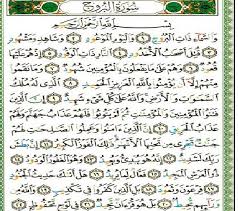 سُورَةُ البُرُوجِ
بِسْمِ اللَّهِ الرَّحْمَٰنِ الرَّحِيمِ
وَالسَّمَاءِ ذَاتِ الْبُرُوجِ ١ وَالْيَوْمِ الْمَوْعُودِ ٢ وَشَاهِدٍ وَمَشْهُودٍ
٣ قُتِلَ أَصْحَٰبُ الْأُخْدُودِ ٤ النَّارِ ذَاتِ الْوَقُودِ ٥ إِذْ هُمْ عَلَيْهَا
قُعُودٌ ٦ وَهُمْ عَلَىٰ مَا يَفْعَلُونَ بِالْمُؤْمِنِينَ شُهُودٌ ٧ وَمَا نَقَمُوا
مِنْهُمْ إِلَّا أَن يُؤْمِنُوا بِاللَّهِ الْعَزِيزِ الْحَمِيدِ ٨ الَّذِي لَهُ مُلْكُ
السَّمَٰوَٰتِ وَالْأَرْضِ وَاللَّهُ عَلَىٰ كُلِّ شَيْءٍ شَهِيدٌ ٩ إِنَّ الَّذِينَ
فَتَنُوا الْمُؤْمِنِينَ وَالْمُؤْمِنَٰتِ ثُمَّ لَمْ يَتُوبُوا فَلَهُمْ عَذَابُ جَهَنَّمَ وَلَهُمْ
عَذَابُ الْحَرِيقِ ١٠ إِنَّ الَّذِينَ ءَامَنُوا وَعَمِلُوا الصَّٰلِحَٰتِ لَهُمْ
جَنَّٰتٌ تَجْرِي مِن تَحْتِهَا الْأَنْهَٰرُ ذَٰلِكَ الْفَوْزُ الْكَبِيرُ ١١ إِنَّ بَطْشَ
رَبِّكَ لَشَدِيدٌ ١٢ إِنَّهُ هُوَ يُبْدِئُ وَيُعِيدُ ١٣ وَهُوَ الْغَفُورُ الْوَدُودُ ١٤
ذُو الْعَرْشِ الْمَجِيدُ ١٥ فَعَّالٌ لِّمَا يُرِيدُ ١٦ هَلْ أَتَىٰكَ حَدِيثُ الْجُنُودِ ١٧
فِرْعَوْنَ وَثَمُودَ ١٨ بَلِ الَّذِينَ كَفَرُوا فِي تَكْذِيبٍ ١٩ وَاللَّهُ مِن
وَرَائِهِم مُّحِيطٌ ٢٠ بَلْ هُوَ قُرْءَانٌ مَّجِيدٌ ٢١ فِي لَوْحٍ مَّحْفُوظٍ ٢٢